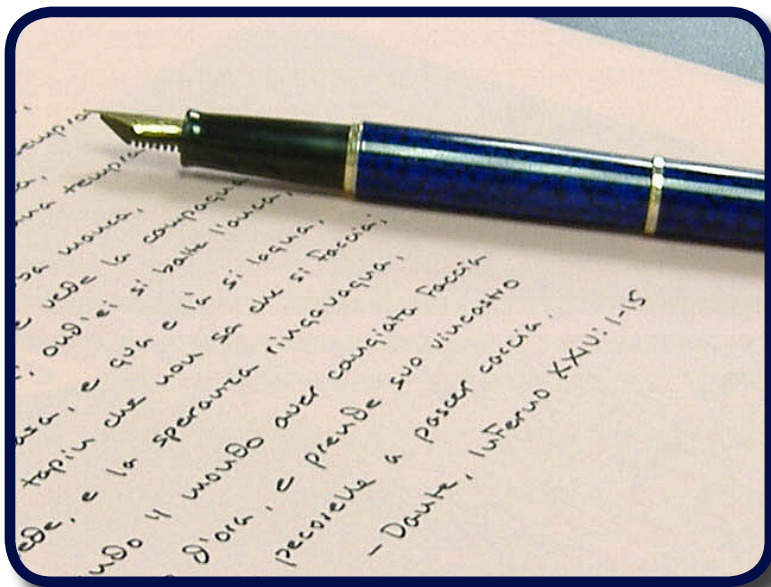 tempra
manca,
e vede la campagna
, ond'ei si batte l'anca,
asa, e qua e là si lagna,
tapin che non sa che si faccia;
ede, e la speranza ringavagna,
ndo 'l mondo aver cangiata faccia
d'ora, e prende suo vincastro
pecorelle a pascer caccia.
- Dante, Inferno XXIV: 1-15